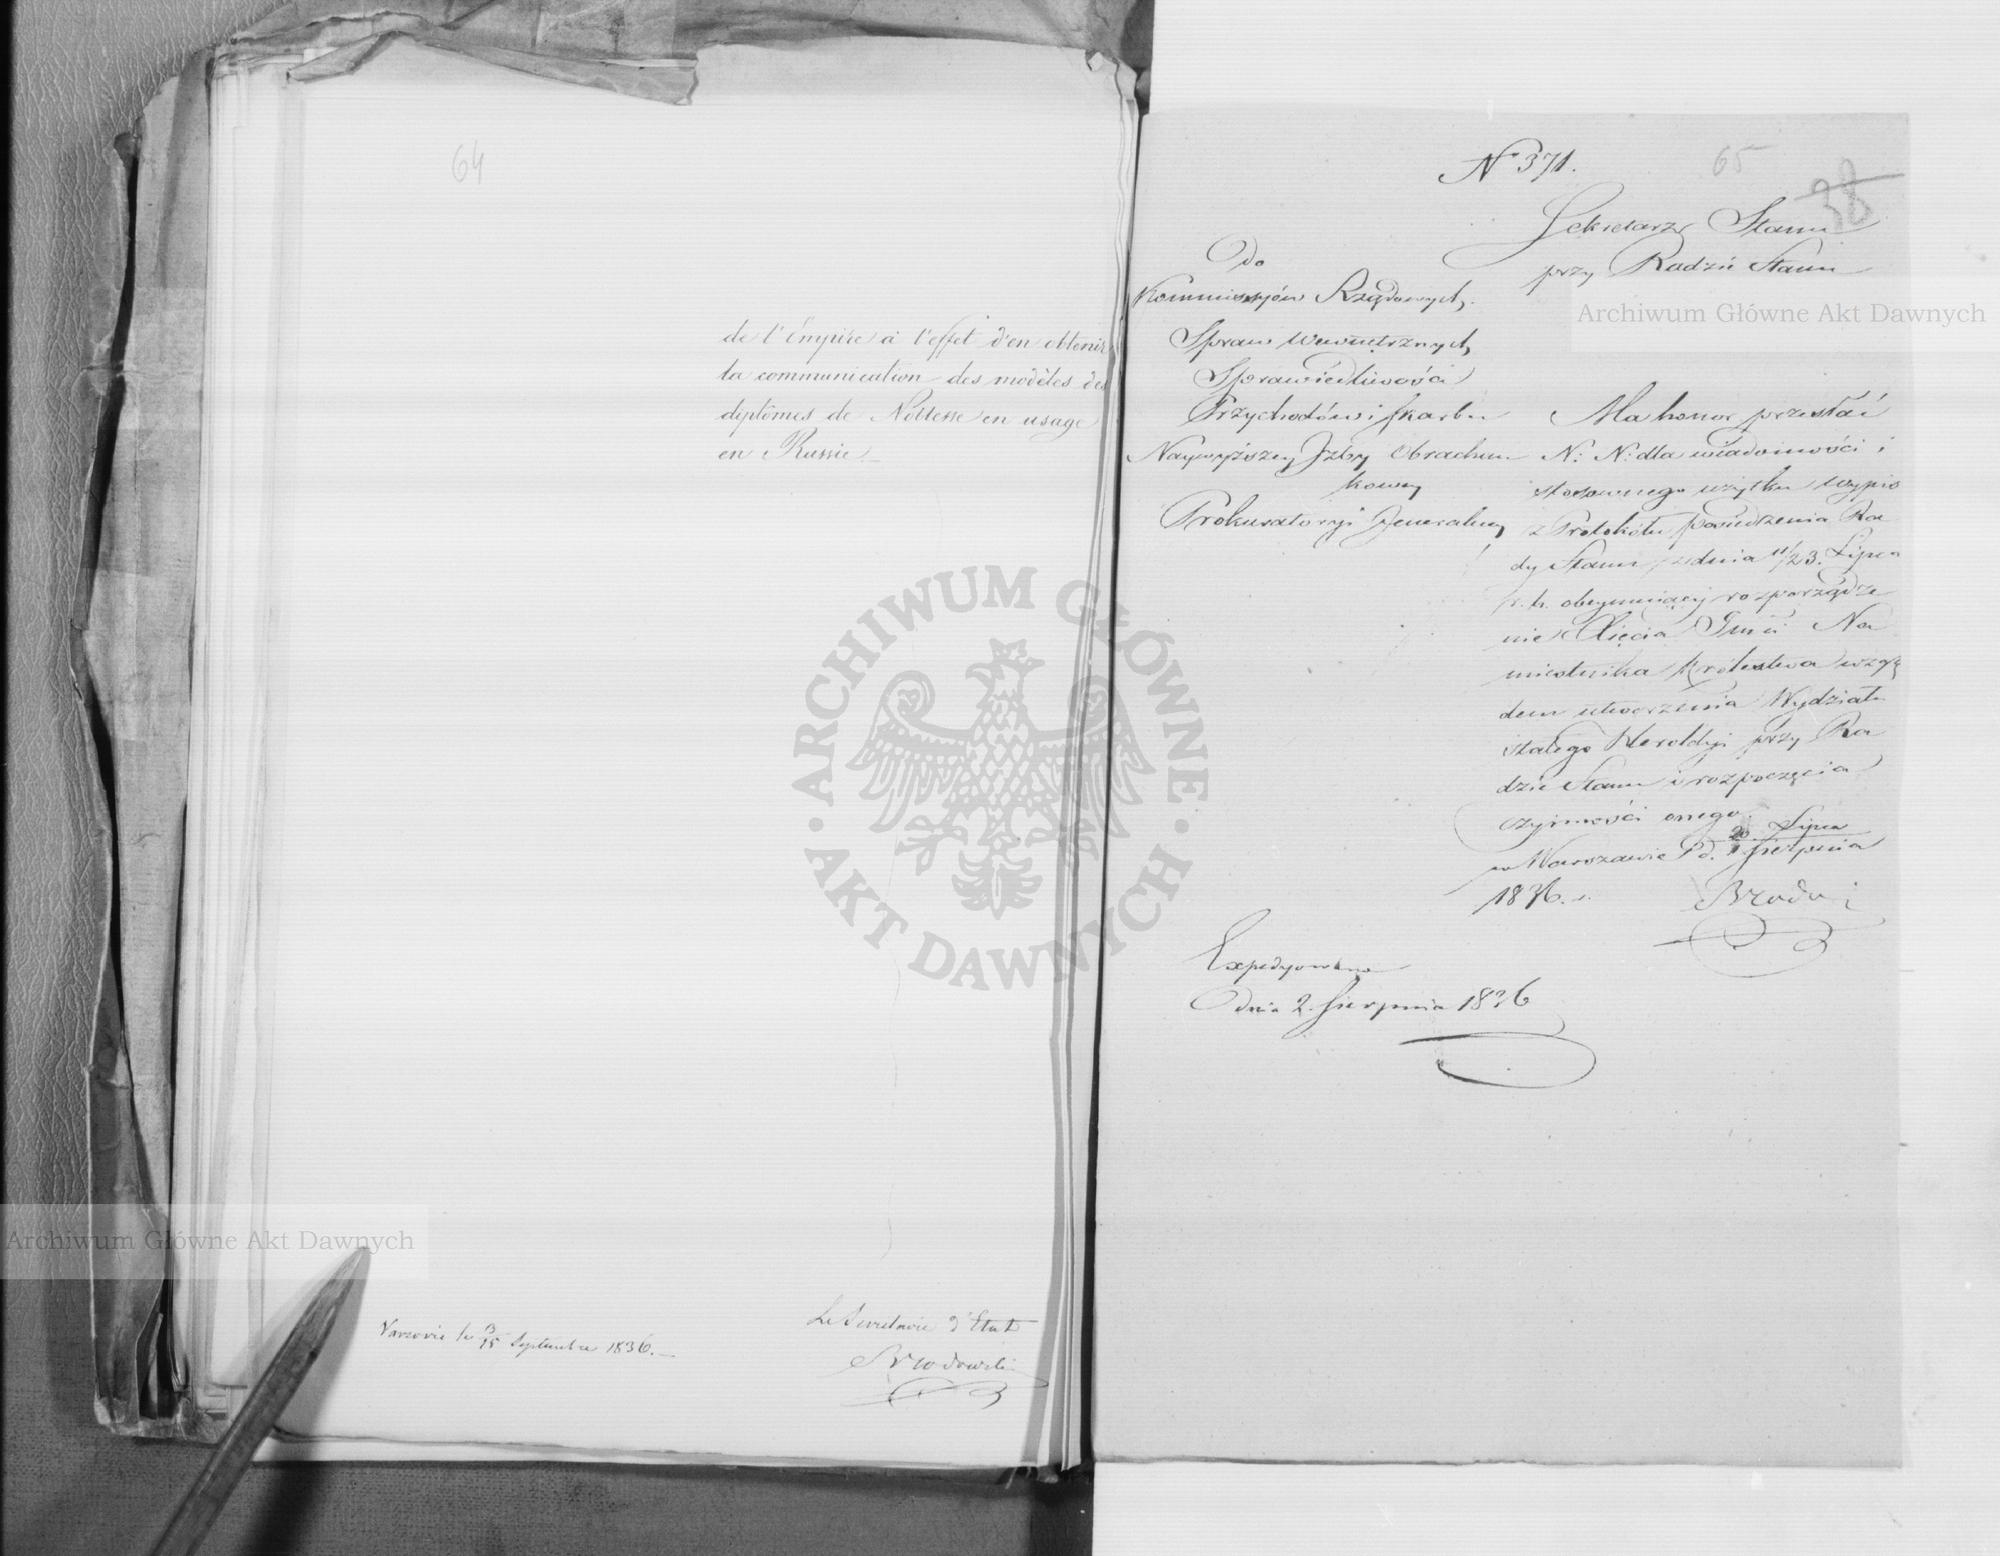 64
de l'Empire à l'effet d'en obtenir
la communication des modèles des
diplômes de Noblesse en usage
en Russie
Varsovie le 3/15 Septembre 1836.
Le Secretaire d'Etat
Brodowski
N° 371.
65
38
Sekretarz Stanu
przy Radzie Stanu
Do
Kommissyów Rządowych
Spraw Wewnętrznych
Sprawiedliwości
Przychodów i Skarbu
Naywyższey Izby Obrachun
kowey
Prokuratoryi Jeneralney
Ma honor przesłać
N: N: dla wiadomości i
stosownego użytku wypis
z Protokółu posiedzenia Ra
dy Stanu z dnia 11/23. Lipca
r. b. obeymuiący rozporządze
nie Xięcia Jmci Na
miestnika Królestwa wzglę
dem utworzenia Wydziału
stałego Heroldyi przy Ra
dzie Stanu i rozpoczęcia
czynności onego.
w Warszawie d. 20 Lipca
1 Sierpnia
1836. r.
Expedyowano
Dnia 2. Sierpnia 1836
Archiwum Główne Akt Dawnych
ARCHIWUM GŁÓWNE AKT DAWNYCH
Archiwum Główne Akt Dawnych